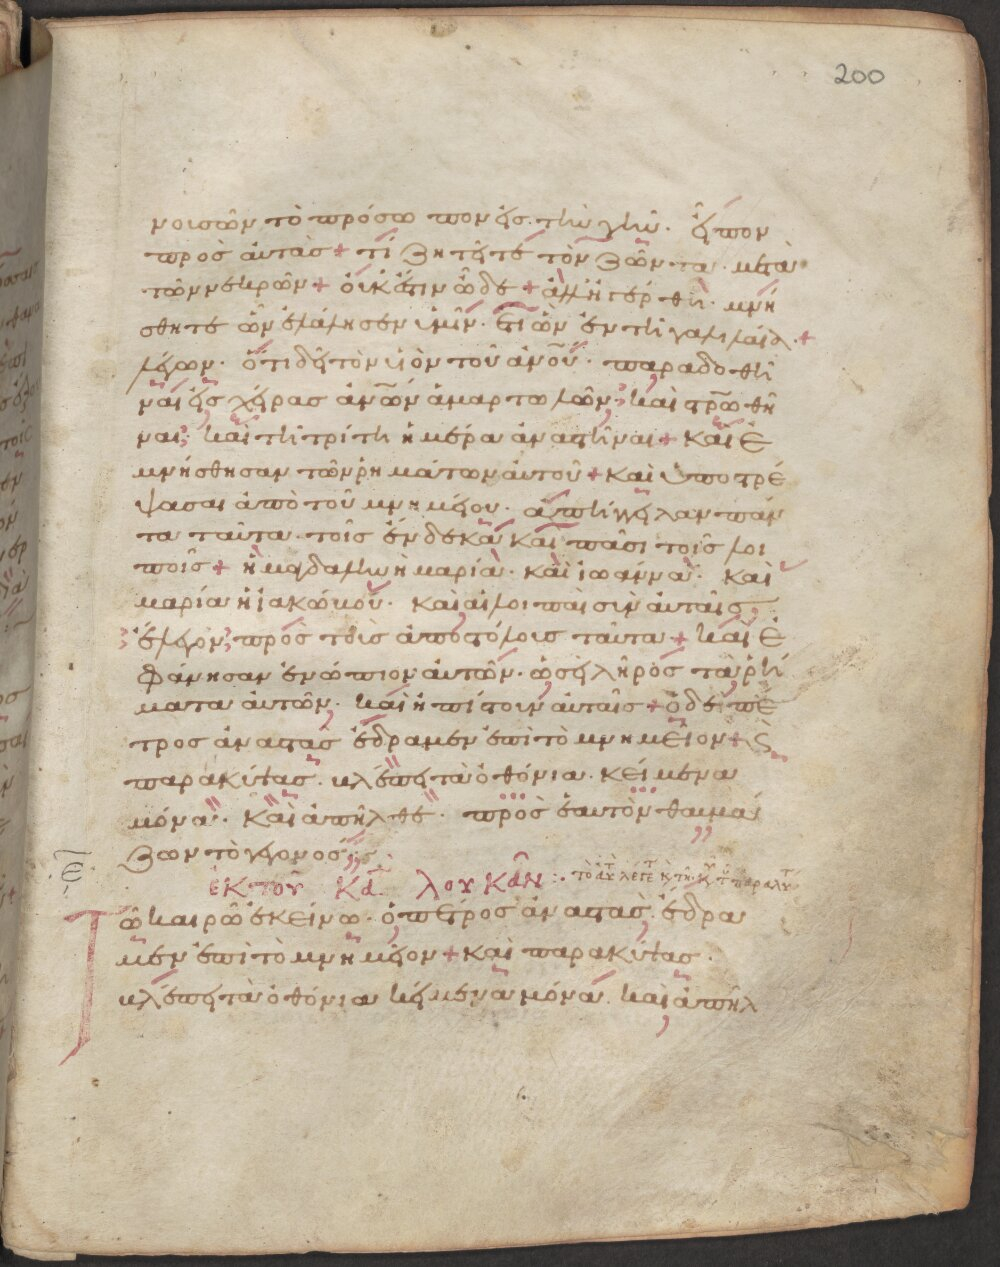 200
νουσῶν τὸ πρόσωπον εἰς τὴν γῆν· εἶπον
πρὸς αὐτάς + τί ζητεῖτε τὸν ζῶντα· μετὰ
τῶν νεκρῶν + οὐκ ἔστιν ὧδε + ἀλλ' ἠγέρθη· μνή
σθητε ὡς ἐλάλησεν ὑμῖν· ἔτι ὢν ἐν τῇ γαλιλαίᾳ +
λέγων· ὅτι δεῖ τὸν υἱὸν τοῦ ἀνου· παραδοθῆ
ναι εἰς χεῖρας ἀνων ἁμαρτωλῶν· καὶ στρωθῆ
ναι· καὶ τῇ τρίτῃ ἡμέρα ἀναστῆναι + καὶ ἐ
μνήσθησαν τῶν ῥημάτων αὐτοῦ + καὶ ὑποστρέ
ψασαι ἀπὸ τοῦ μνημείου· ἀπήγγειλαν πάν
τα ταῦτα τοῖς ἕνδεκα καὶ πᾶσι τοῖς λοι
ποῖς + ἡ μαγδαληνὴ μαρία· καὶ ἰωάννα· καὶ
μαρία ἡ ἰακώβου· καὶ αἱ λοιπαὶ σὺν αὐταῖς
ἔλεγον πρὸς τοὺς ἀποστόλους ταῦτα + καὶ ἐ
φάνησαν ἐνώπιον αὐτῶν· ὡσεὶ λῆρος τὰ ῥή
ματα αὐτῶν· καὶ ἠπίστουν αὐταῖς + ὁ δὲ πέ
τρος ἀναστὰς ἔδραμεν ἐπὶ τὸ μνημεῖον + ϛ
παρακύψας· βλέπει τὰ ὀθόνια· κείμενα
μόνα· καὶ ἀπῆλθε· πρὸς ἑαυτὸν θαυμά
ζων τὸ γεγονός
ε ἐκ τοῦ κα λουκᾶν
Τῶ καιρῶ ἐκείνω· ὁ πετρος ἀναστὰς ἔδρα
μεν ἐπὶ τὸ μνημεῖον + καὶ παρακύψας·
βλέπει τὰ ὀθόνια κείμενα μόνα· καὶ ἀπῆλ